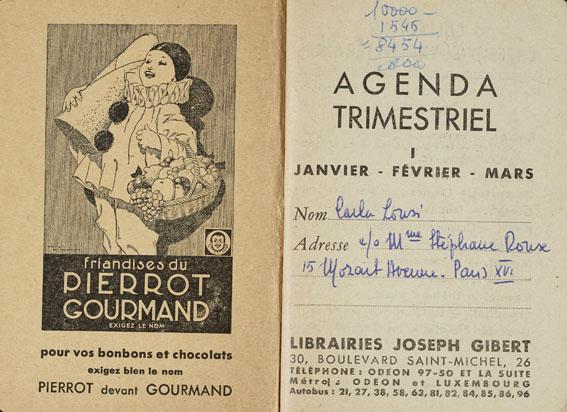 friandises du
PIERROT
GOURMAND
EXIGEZ LE NOM
pour vos bonbons et chocolats
exigez bien le nom
PIERROT devant GOURMAND
10000-
1546
8454
AGENDA
TRIMESTRIEL
I
JANVIER - FÉVRIER - MARS
Nom Carla Lonzi
Adresse c/o Mme Stéphane Rousse
15 Mozart Avenue. Paris XVI
LIBRAIRIES JOSEPH GIBERT
30, BOULEVARD SAINT-MICHEL, 26
TÉLÉPHONE : ODEON 97-50 ET LA SUITE
Métro : ODÉON et LUXEMBOURG
Autobus : 21, 27, 38, 58, 63, 81, 82, 84, 85, 86, 96